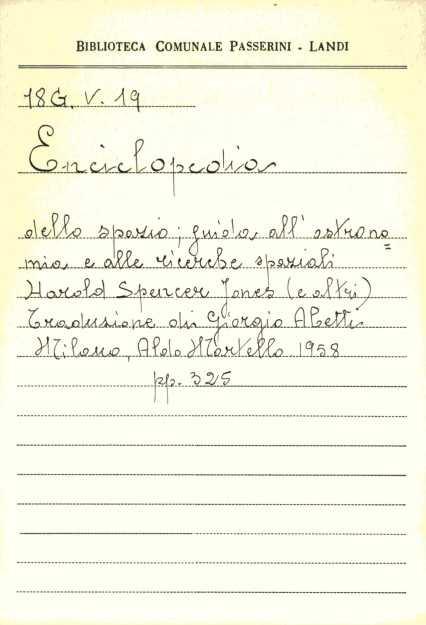 BIBLIOTECA COMUNALE PASSERINI - LANDI
18G. V. 19
Enciclopedia
dello spazio; guida all' astrono=
mia e alle ricerche spaziali
Harold Spencer Jones (e altri)
Traduzione di Giorgio Abetti
Milano, Aldo Martello 1958
pp. 325